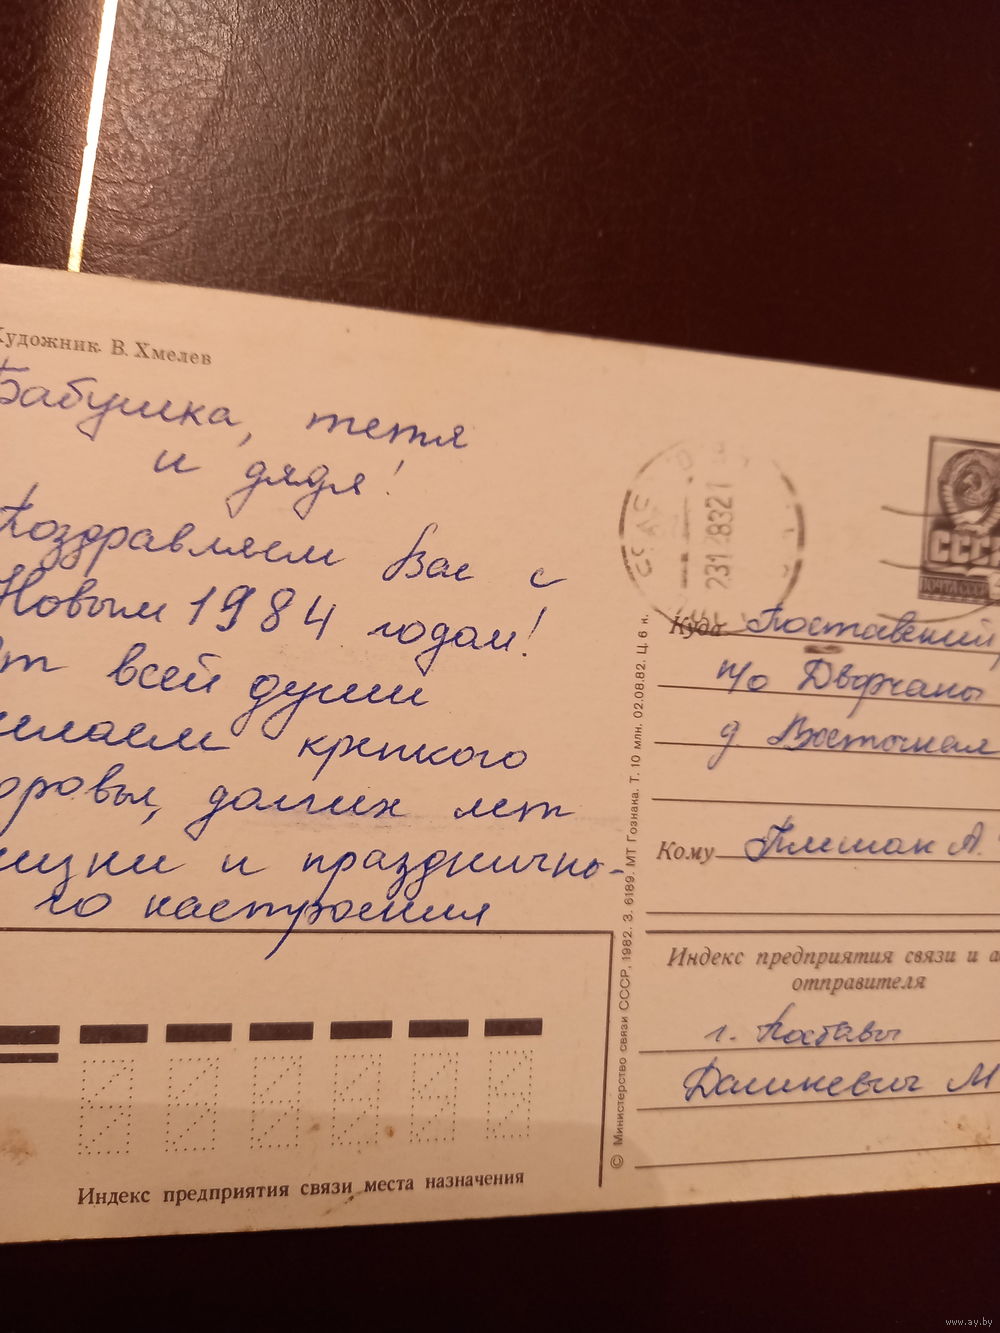 Художник В. Хмелев
Бабушка, тетя
и дядя!
Поздравляем Вас с
Новым 1984 годом!
От всей души
желаем крепкого
здоровья, долгих лет
жизни и празднично-
го настроения
Индекс предприятия связи места назначения
© Министерство связи СССР, 1982. З. 6189. МТ Гознака. Т. 10 млн. 02.08.82. Ц. 6 к.
СССР
ПОЧТА СССР
Куда Поставский
п/о Дворчаны
д Восточная
Кому Плешак А.
Индекс предприятия связи и а
отправителя
г. Поставы
Дашкевич М
www.ay.by